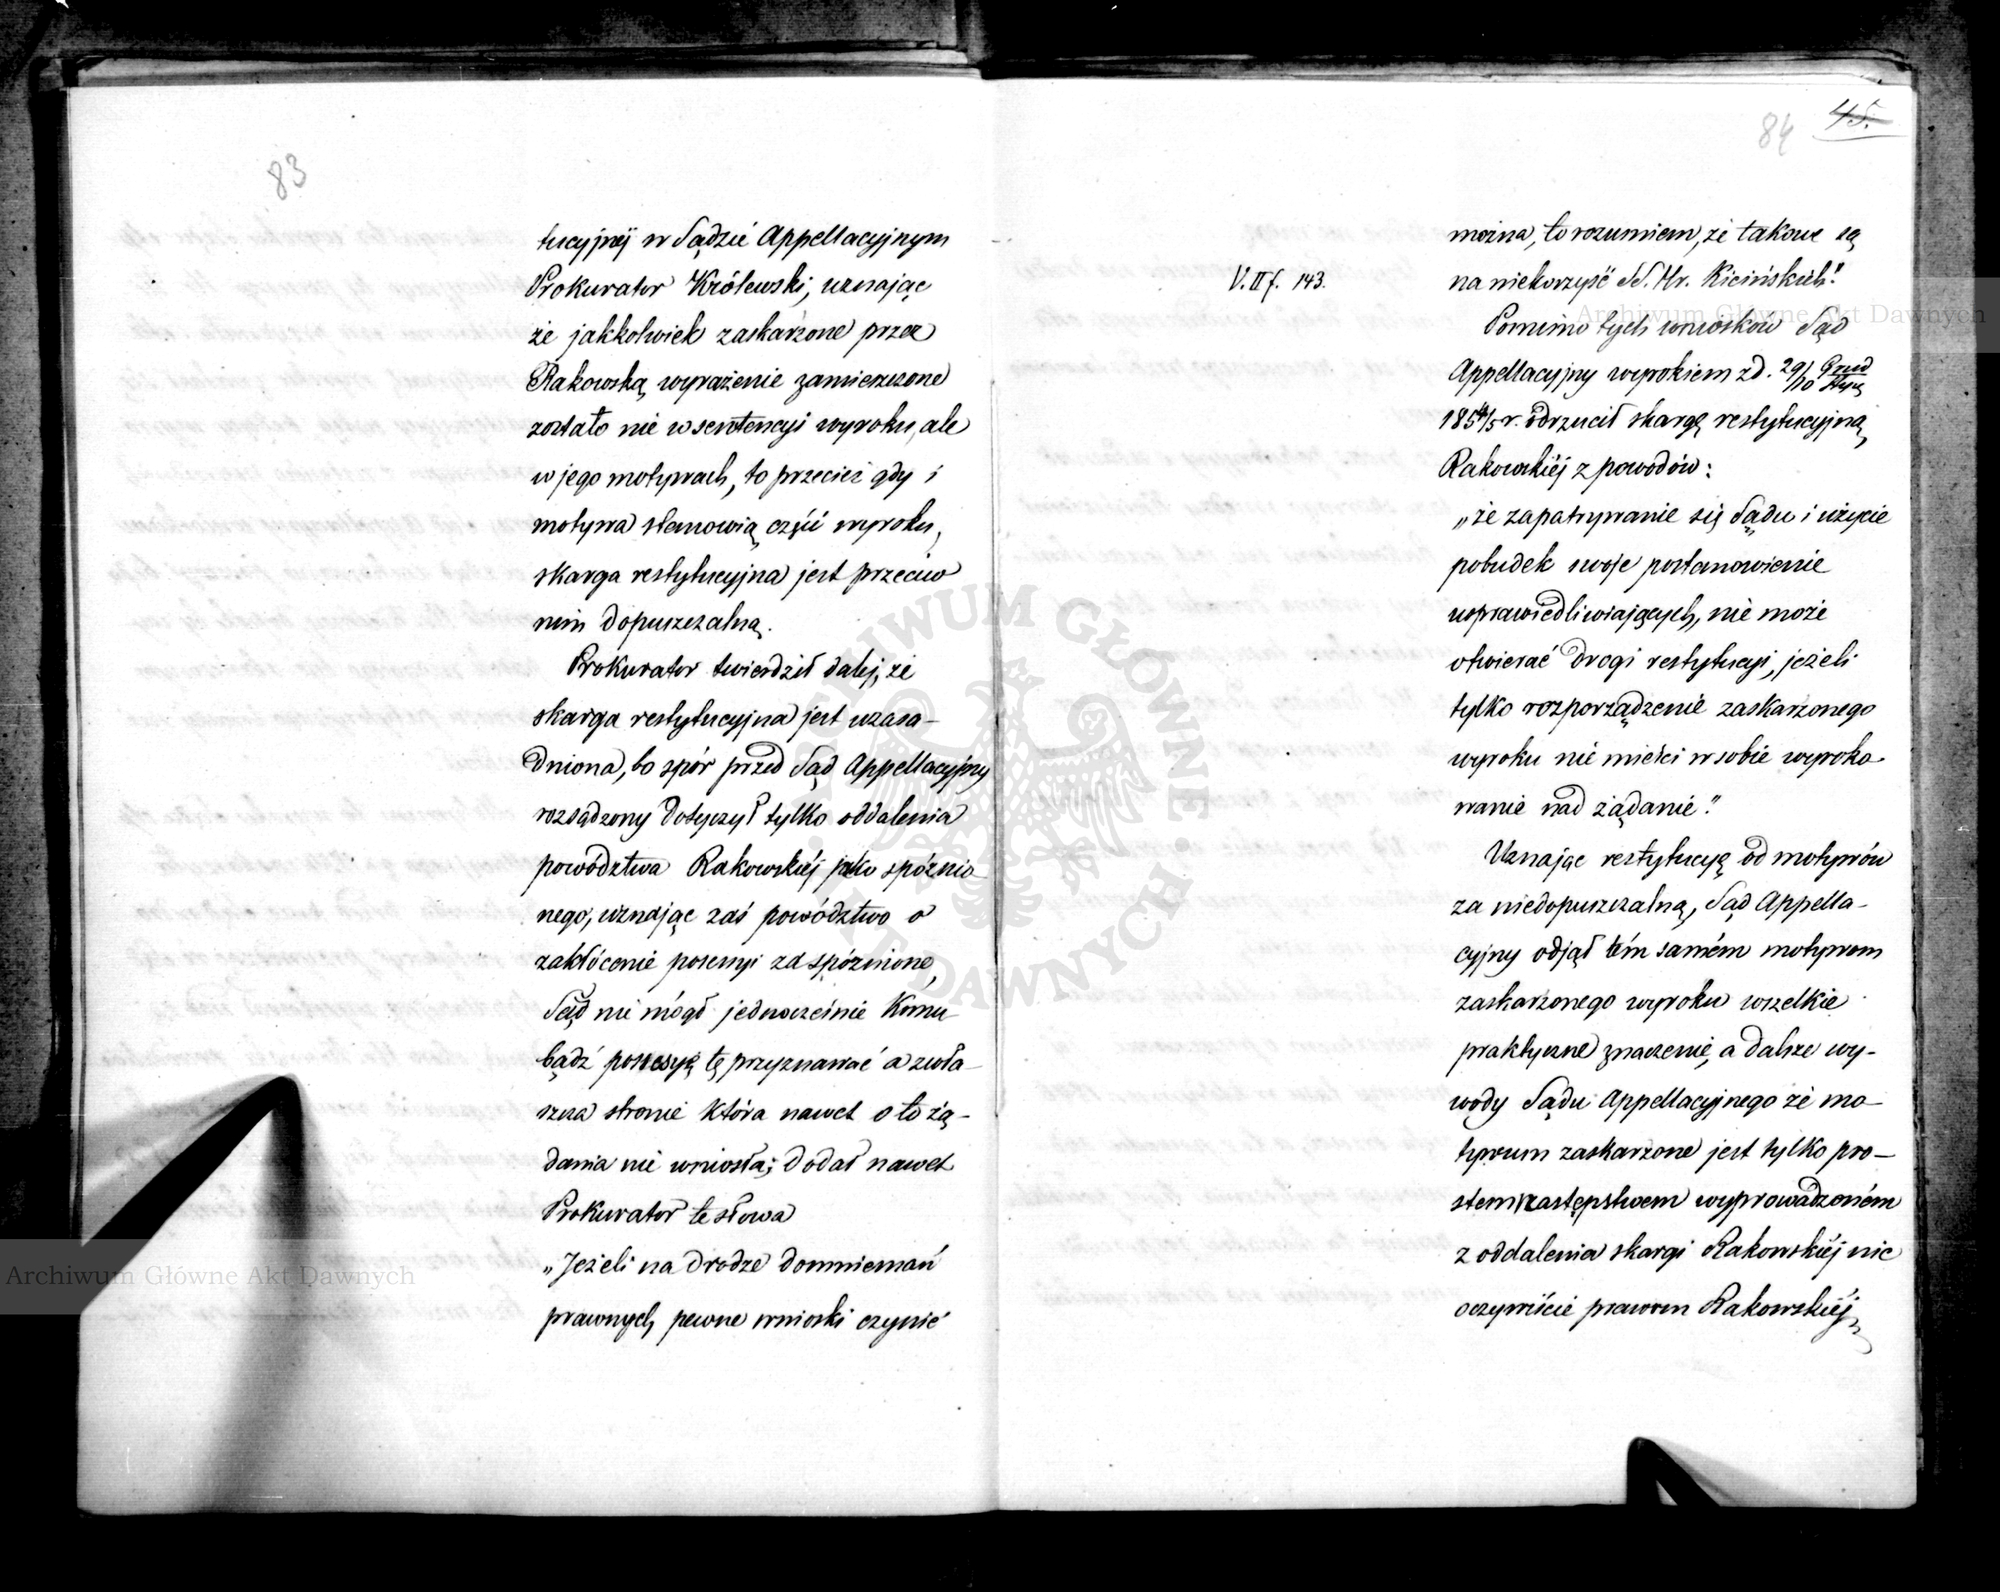 83
tucyjnéj w Sądzie Appellacyjnym
Prokurator Królewski, uznając
że jakkolwiek zaskarżone przez
Rakowską wyrażenie zamieszczone
zostało nie w sentencyi wyroku, ale
w jego motywach, to przecież gdy i
motywa stanowią część wyroku,
skarga restytucyjna jest przeciw
nim dopuszczalną.
Prokurator twierdził dalej, że
skarga restytucyjna jest uzasa-
dniona, bo spór przed Sąd Appellacyjny
rozsądzony dotyczył tylko oddalenia
powództwa Rakowskiéj jako spóźnio-
nego, uznając zaś powództwo o
zakłócenie posessyi za spóźnione,
Sąd nie mógł jednocześnie komu
bądź posessyę tę przyznawać a zwła-
szcza stronie która nawet o to żą-
dania nie wniosła; dodał nawet
Prokurator te słowa
„Jeżeli na drodze domniemań
prawnych pewne wnioski czynić
84 45.
można, to rozumiem, że takowe są
V. II f. 143.
na niekorzyść SS. Hr. Kicińskich."
Pomimo tych wniosków Sąd
Appellacyjny wyrokiem z d. 29/10 Grud/Stycz
1854/5 r. odrzucił skargę restytucyjną
Rakowskiéj z powodów:
„że zapatrywanie się Sądu i użycie
pobudek swoje postanowienie
usprawiedliwiających, nie może
otwierać drogi restytucyi, jeżeli
tylko rozporządzenie zaskarżonego
wyroku nie mieści w sobie wyroko-
wanie nad żądanie."
Uznając restytucyę od motywów
za niedopuszczalną, Sąd Appella-
cyjny odjął tém samém motywom
zaskarżonego wyroku wszelkie
praktyczne znaczenie, a dalsze wy-
wody Sądu Appellacyjnego że mo-
tywum zaskarżone jest tylko pro-
stem następstwem wyprowadzoném
z oddalenia skargi Rakowskiéj nie
oczywiście prawom Rakowskiéj
Archiwum Główne Akt Dawnych
Archiwum Główne Akt Dawnych
ARCHIWUM GŁÓWNE AKT DAWNYCH